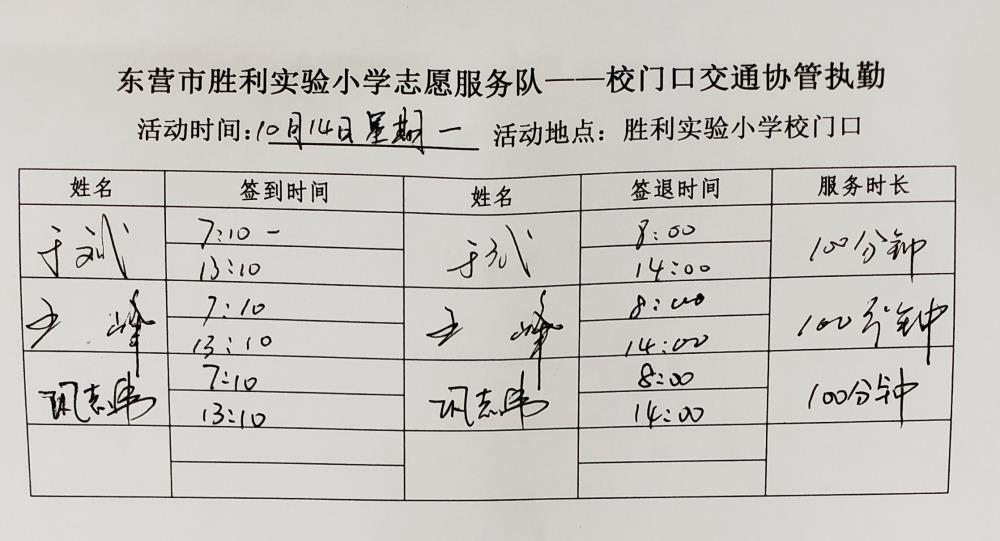 东营市胜利实验小学志愿服务队——校门口交通协管执勤
活动时间:10月14日星期一 活动地点:胜利实验小学校门口
姓名 签到时间 姓名 签退时间 服务时长
于斌 7:10 - 于斌 8:00 100分钟
13:10 14:00
王峰 7:10 王峰 8:00 100分钟
13:10 14:00
志伟 7:10 志伟 8:00 100分钟
13:10 14:00